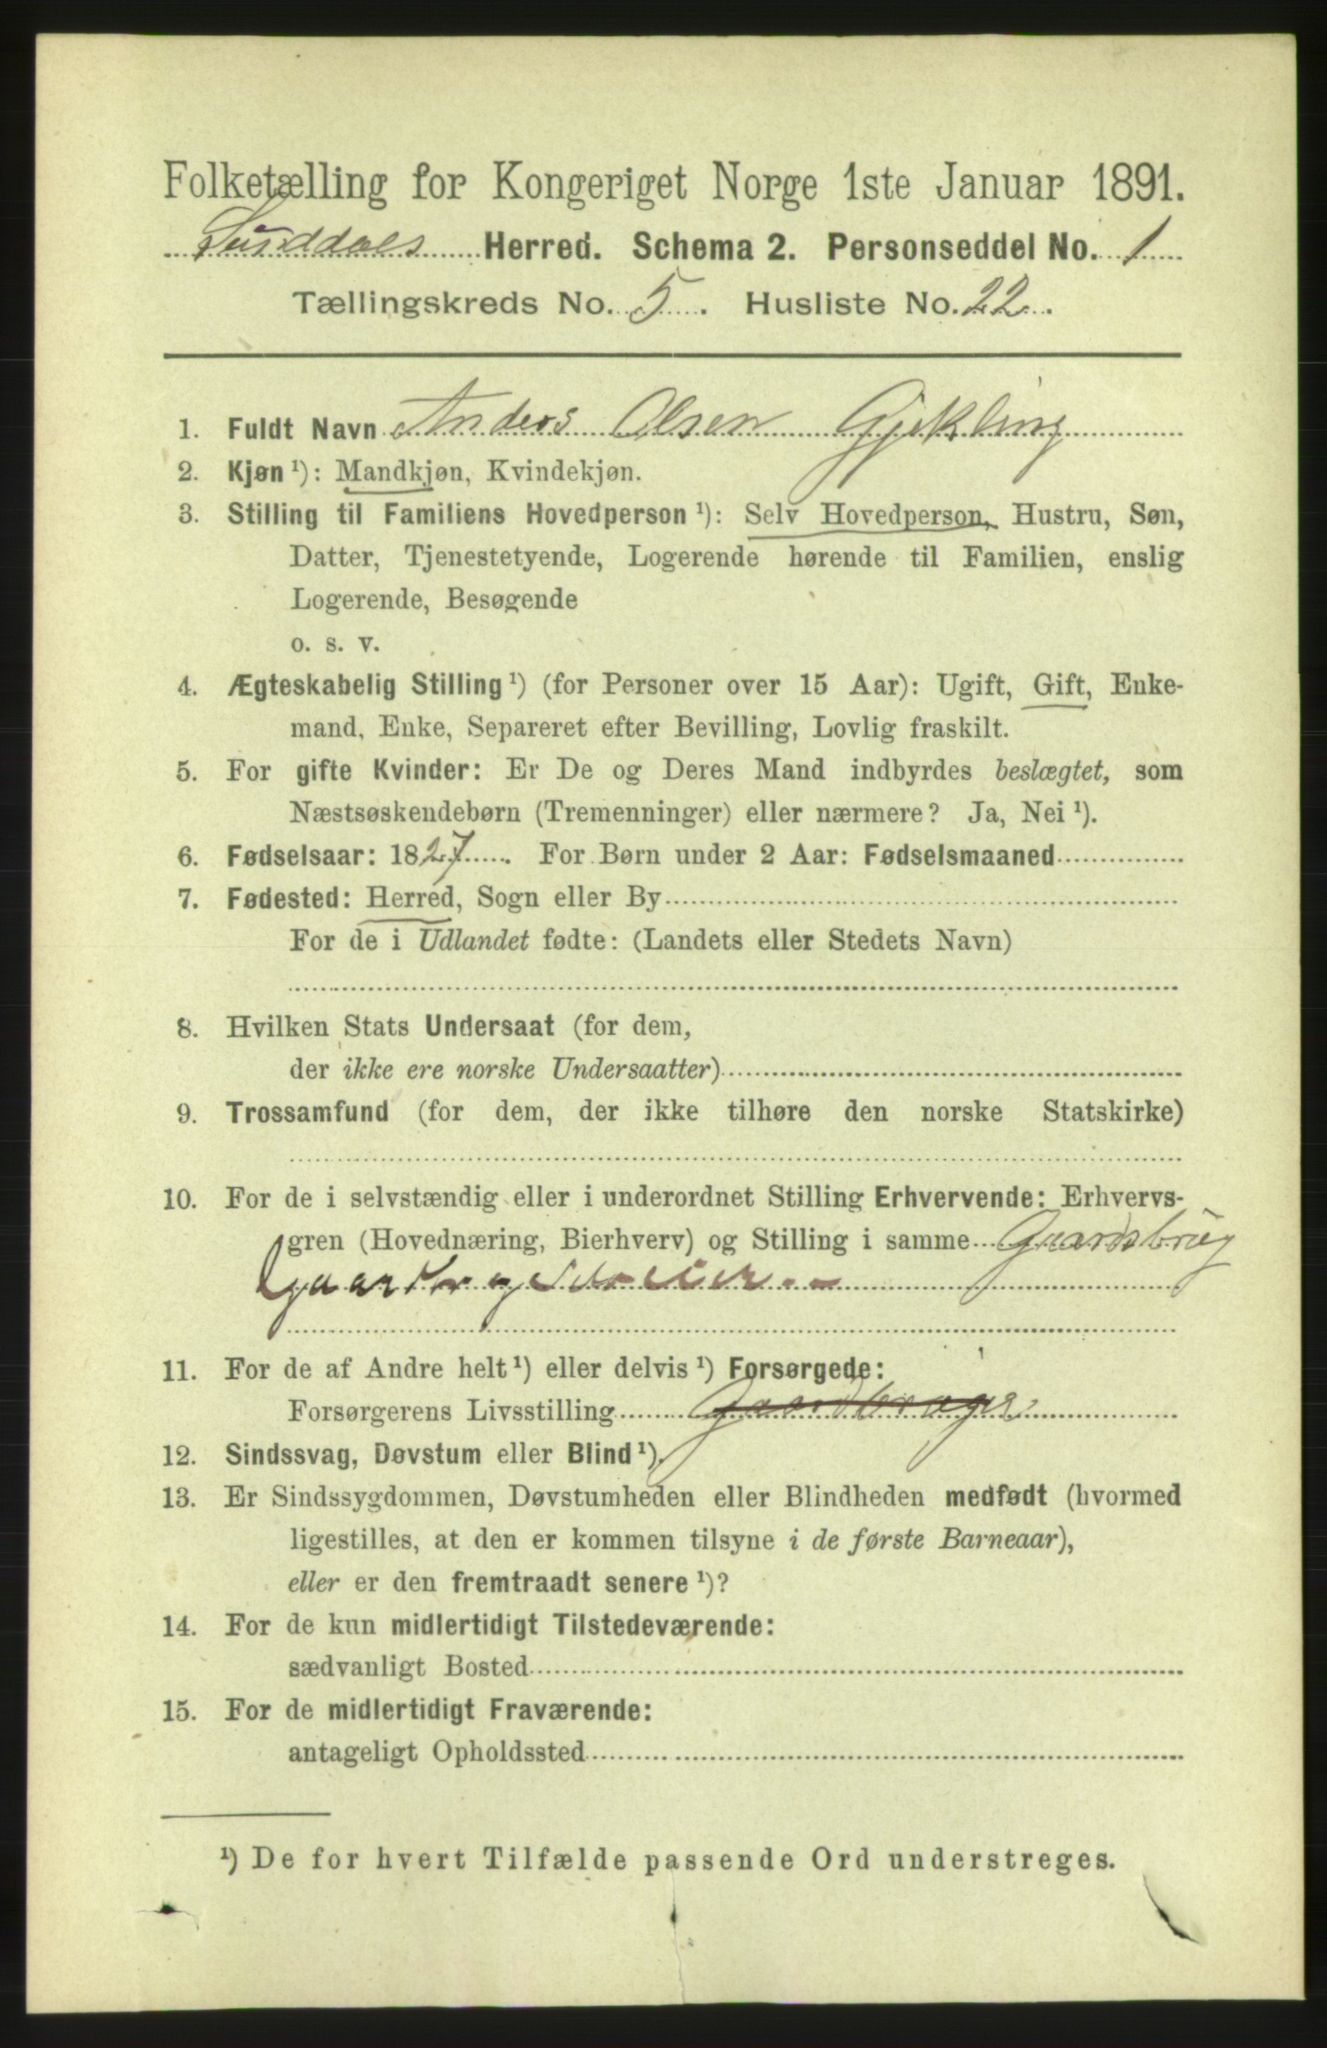 Folketælling for Kongeriget Norge 1ste Januar 1891.
Sunddals Herred. Schema 2. Personseddel No. 1
Tællingskreds No. 5. Husliste No. 22.
1. Fuldt Navn Anders Olsen Gjikling
2. Kjøn ¹): Mandkjøn, Kvindekjøn.
3. Stilling til Familiens Hovedperson ¹): Selv Hovedperson, Hustru, Søn,
Datter, Tjenestetyende, Logerende hørende til Familien, enslig
Logerende, Besøgende
o. s. v.
4. Ægteskabelig Stilling ¹) (for Personer over 15 Aar): Ugift, Gift, Enke-
mand, Enke, Separeret efter Bevilling, Lovlig fraskilt.
5. For gifte Kvinder: Er De og Deres Mand indbyrdes beslægtet, som
Næstsøskendebørn (Tremenninger) eller nærmere? Ja, Nei ¹).
6. Fødselsaar: 1827. For Børn under 2 Aar: Fødselsmaaned
7. Fødested: Herred, Sogn eller By
For de i Udlandet fødte: (Landets eller Stedets Navn)
8. Hvilken Stats Undersaat (for dem,
der ikke ere norske Undersaatter)
9. Trossamfund (for dem, der ikke tilhøre den norske Statskirke)
10. For de i selvstændig eller i underordnet Stilling Erhvervende: Erhvervs-
gren (Hovednæring, Bierhverv) og Stilling i samme Gaardsbrug
11. For de af Andre helt ¹) eller delvis ¹) Forsørgede:
Forsørgerens Livsstilling Gaardbruger
12. Sindssvag, Døvstum eller Blind ¹).
13. Er Sindssygdommen, Døvstumheden eller Blindheden medfødt (hvormed
ligestilles, at den er kommen tilsyne i de første Barneaar),
eller er den fremtraadt senere ¹)?
14. For de kun midlertidigt Tilstedeværende:
sædvanligt Bosted
15. For de midlertidigt Fraværende:
antageligt Opholdssted
¹) De for hvert Tilfælde passende Ord understreges.